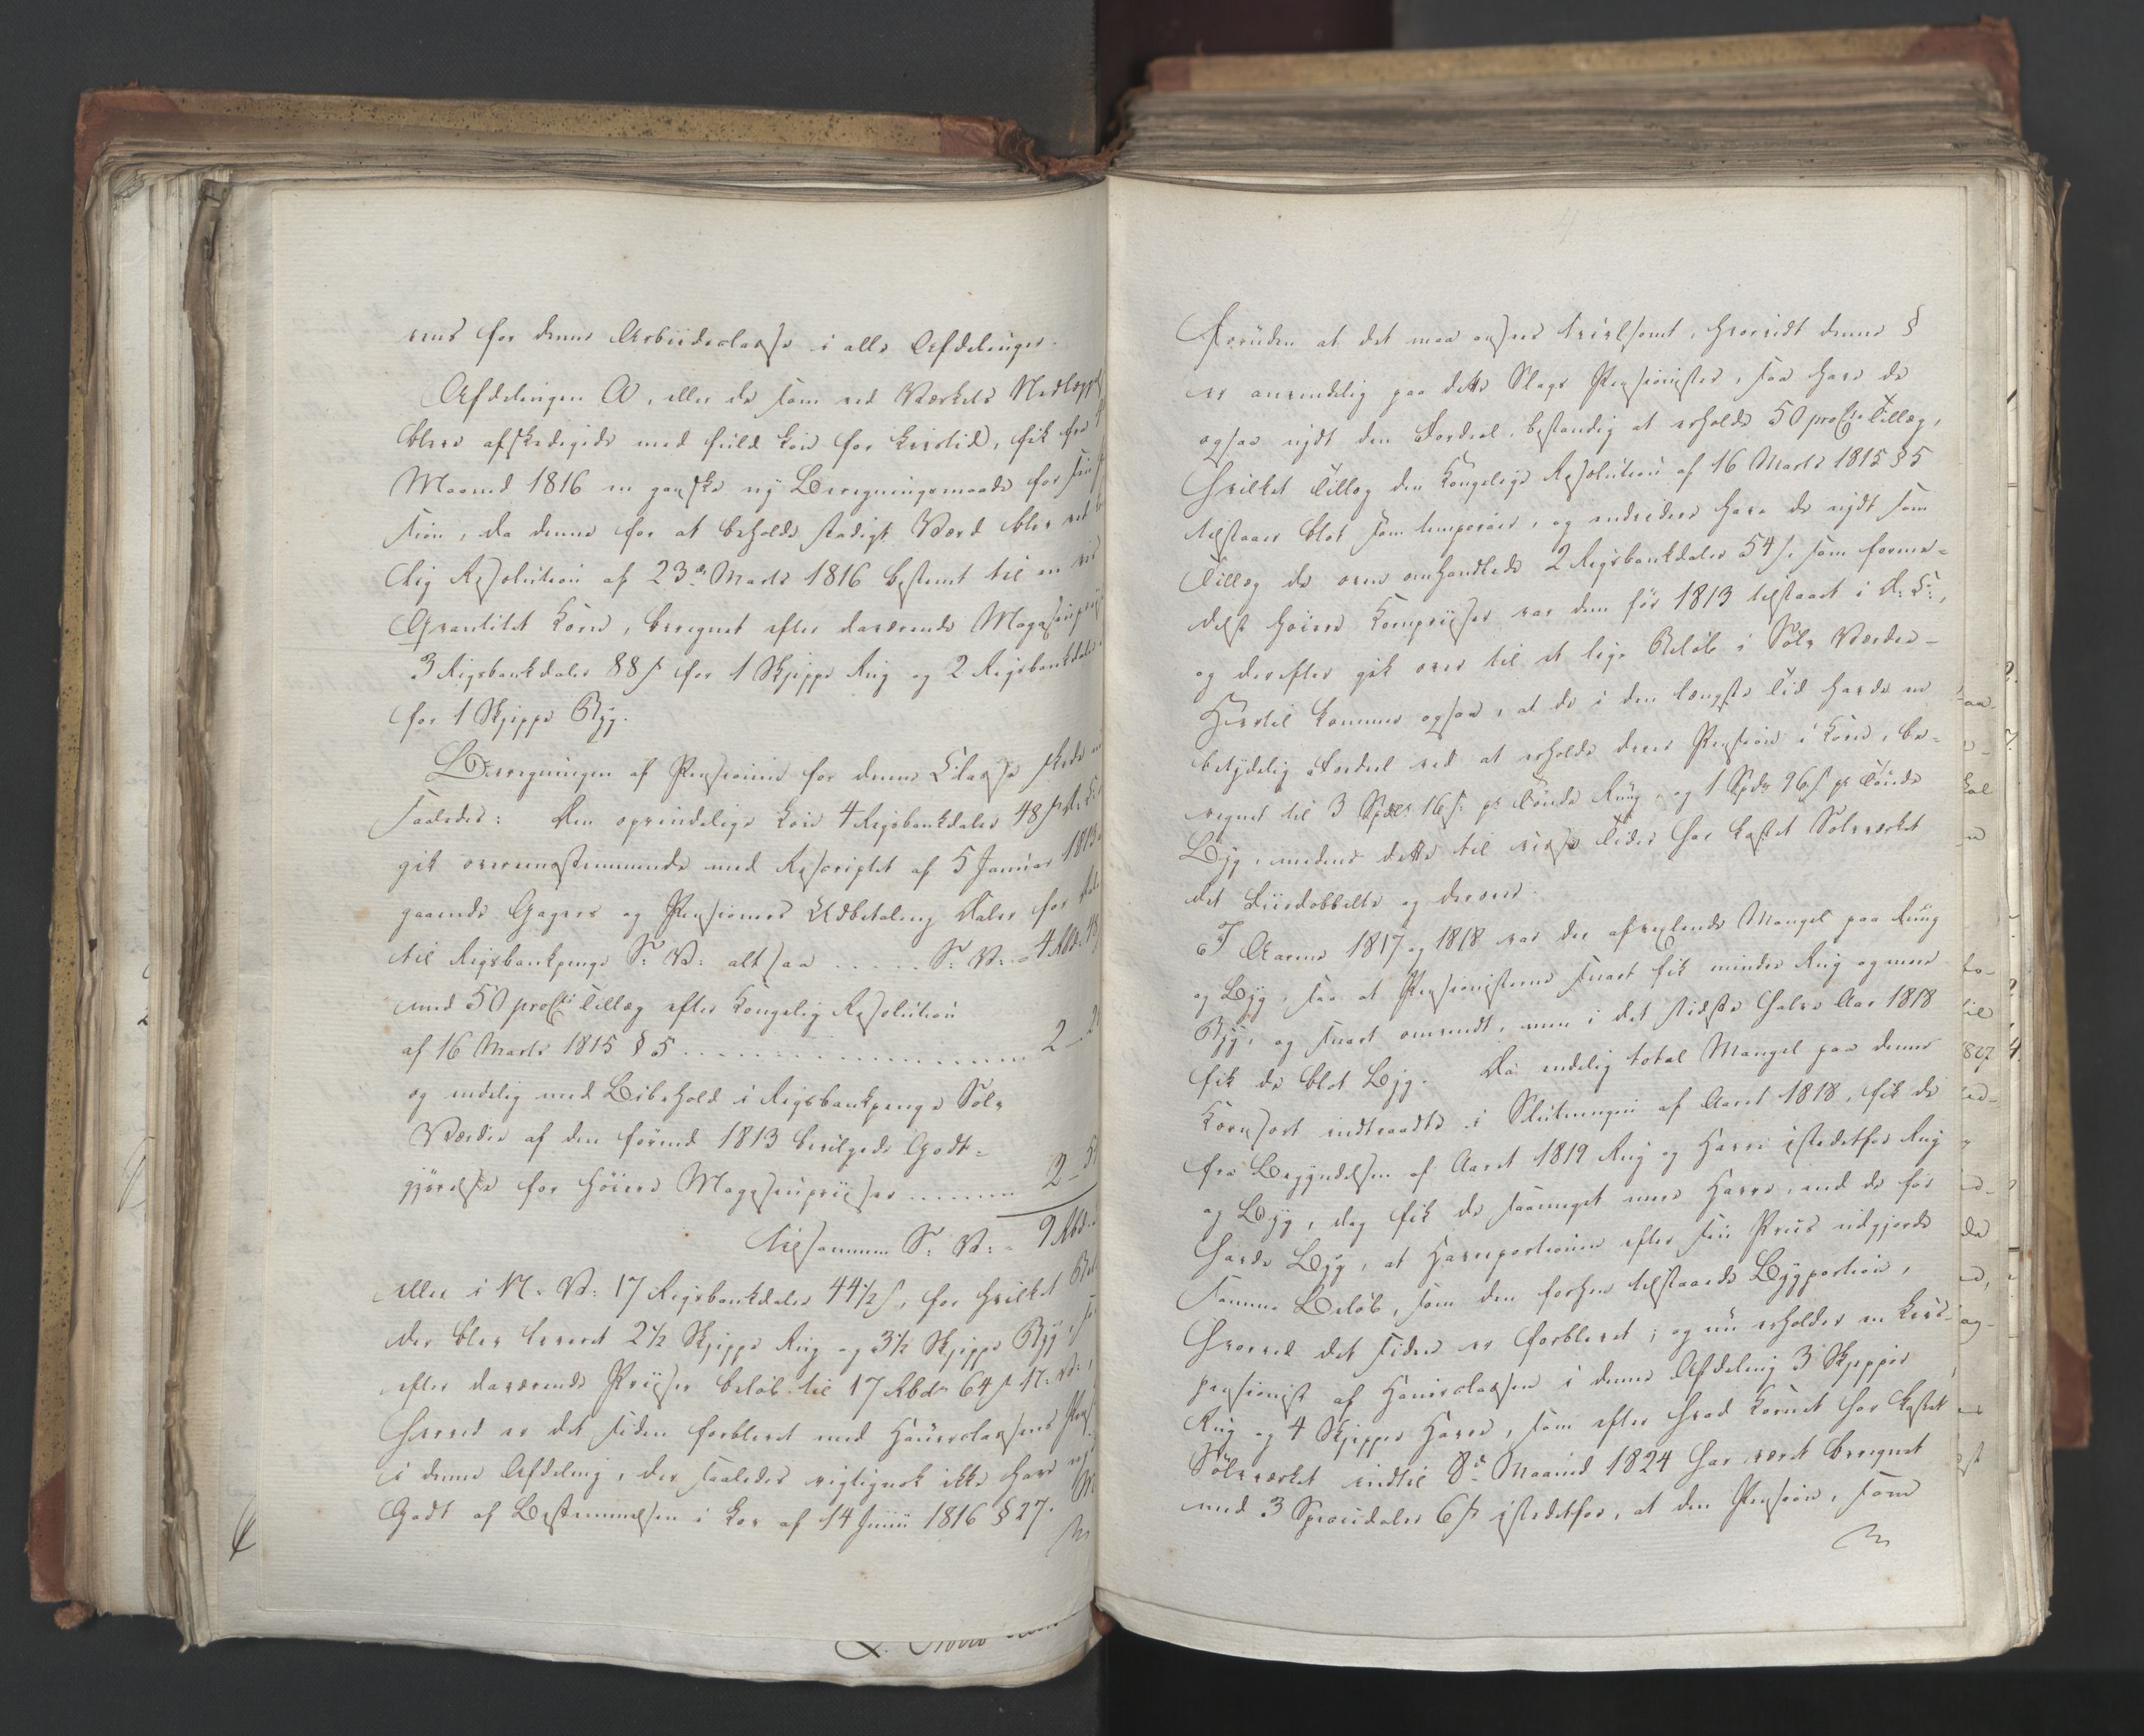 rens for denne Arbeidsclasse i alle Afdelinger.
Afdelingen A, eller de som ved Værkets Nedlægg
blev afskedigede med fuld Løn for Livstid, fik fra
Maaned 1816 en ganske ny Beregningsmaade for
sion, da denne for at beholde stadigt Værd blev ved
lig Resolution af 23de Marts 1816 bestemt til en vis
Qvantitet Korn, beregnet efter daværende Magasinpriis
3 Rigsbankdaler 88 s for 1 Skjeppe Rug og 2 Rigsbankdaler
for 1 Skjeppe Byg.
Beregningen af Pensionen for denne Classe skede
saaledes: Den oprindelige Løn 4 Rigsbankdaler 48 s
gik overeensstemmende med Rescriptet af 5 Januar 1813
gaaende Gagers og Pensioners Udbetaling Daler for Daler
til Rigsbankpenge S: V: altsaa ..... S: V: 4 Rbd. 48
med 50 proCto Tillæg efter Kongelig Resolution
af 16 Marts 1815 § 5 ................ 2 - 2
og endelig med Bibehold i Rigsbankpenge Sølv
Værdie af den førend 1813 bevilgede Godt-
gjørelse for høiere Magasinpriiser ....... 2 - 5
tilsammen S: V: - 9 Rbd.
eller i N: V: 17 Rigsbankdaler 44½ s, for hvilket
der blev leveret 2½ Skjeppe Rug og 3½ Skjeppe Byg
efter daværende Priiser beløb til 17 Rbdr 64 s N: V:,
hvorved er det siden forblevet med Hauerclassens
i denne Afdeling, der saaledes rigtignok ikke have
Godt af Bestemmelsen i Lov af 14 Junii 1816 § 27.
Foruden at det maa ansees tvivlsomt, hvorvidt denne §
er anvendelig paa dette Slags Pensionister, saa have de
ogsaa nydt den Fordeel, bestandig at erholde 50 proCto Tillæg,
hvilket Tillæg den Kongelige Resolution af 16 Marts 1815 § 5
tilstaaer blot som temporair, og endvidere have de nydt som
Tillæg de oven omhandlede 2 Rigsbankdaler 54 s, som forme-
delst høiere Kornpriiser var dem før 1813 tilstaaet i D: C:,
og derefter gik over til et lige Beløb i Sølv Værdie-
Hertil kommer ogsaa, at de i den længste Tid havde en
betydelig Fordeel ved at erholde deres Pension i Korn, be-
regnet til 3 Spdlr 16 s pr Tønde Rug, og 1 Spdr 96 s pr Tønde
Byg, medens dette til visse Tider har kostet Sølvværket
det Fiirdobbelte og derover.
I Aarene 1817 og 1818 var der afvexlende Mangel paa Rug
og Byg, saa at Pensionisterne snart fik mindre Rug og mere
Byg, og snart omvendt, men i det sidste halve Aar 1818
fik de blot Byg. Da endelig total Mangel paa denne
Kornsort indtraadte i Slutningen af Aaret 1818, fik de
fra Begyndelsen af Aaret 1819 Rug og Havre istedetfor Rug
og Byg, dog fik de saameget mere Havre, end de før
havde Byg, at Havreportionen efter sin Priis udgjorde
samme Beløb, som den forhen tilstaaede Bygportion,
hvorved det siden er forblevet; og nu erholder en Livs-
pensionist af Hauerclassen i denne Afdeling 3 Skjepper
Rug og 4 Skjepper Havre, som efter hvad Kornet har kostet
Sølvværket indtil 8de Maaned 1824 har været beregnet
med 3 Speciedaler 6 s istedetfor, at den Pension, som